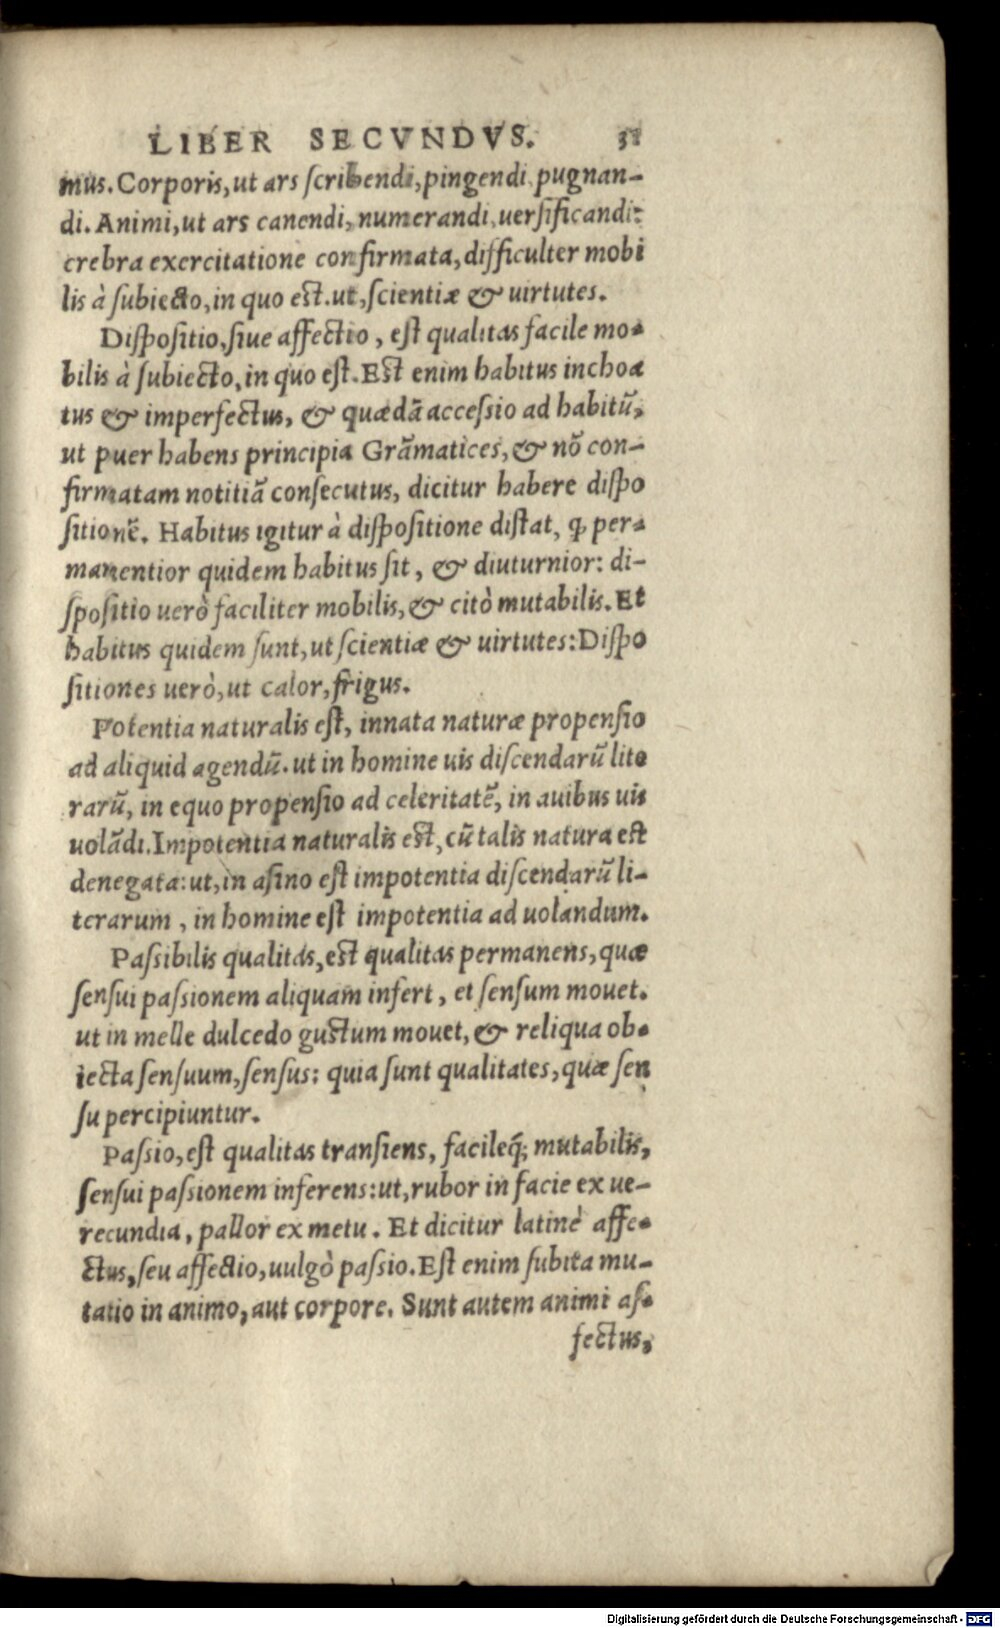 LIBER SECVNDVS. 31
mus. Corporis, ut ars ſcribendi, pingendi, pugnan-
di. Animi, ut ars canendi, numerandi, uerſificandi:
crebra exercitatione confirmata, difficulter mobi
lis à ſubiecto, in quo eſt. ut, ſcientiæ & uirtutes.
Diſpoſitio, ſiue affectio, eſt qualitas facile mo-
bilis à ſubiecto, in quo eſt. Eſt enim habitus inchoa
tus & imperfectus, & quædā acceſsio ad habitū,
ut puer habens principia Grāmatices, & nō con-
firmatam notitiā conſecutus, dicitur habere diſpo
ſitionē. Habitus igitur à diſpoſitione diſtat, ꝙ per-
manentior quidem habitus ſit, & diuturnior: di-
ſpoſitio uerò faciliter mobilis, & citò mutabilis. Et
habitus quidem ſunt, ut ſcientiæ & uirtutes: Diſpo
ſitiones uerò, ut calor, frigus.
Potentia naturalis eſt, innata naturæ propenſio
ad aliquid agendū. ut in homine uis diſcendarū lite
rarū, in equo propenſio ad celeritatē, in auibus uis
uolādi. Impotentia naturalis eſt, cū talis natura eſt
denegata: ut, in aſino eſt impotentia diſcendarū li-
terarum, in homine eſt impotentia ad uolandum.
Paſsibilis qualitas, eſt qualitas permanens, quæ
ſenſui paſsionem aliquam infert, et ſenſum mouet.
ut in melle dulcedo guſtum mouet, & reliqua ob-
iecta ſenſuum, ſenſus: quia ſunt qualitates, quæ ſen
ſu percipiuntur.
Paſsio, eſt qualitas tranſiens, facileq́; mutabilis,
ſenſui paſsionem inferens: ut, rubor in facie ex ue-
recundia, pallor ex metu. Et dicitur latinè affe-
ctus, ſeu affectio, uulgò paſsio. Eſt enim ſubita mu-
tatio in animo, aut corpore. Sunt autem animi af-
fectus,
Digitalisierung gefördert durch die Deutsche Forschungsgemeinschaft - DFG